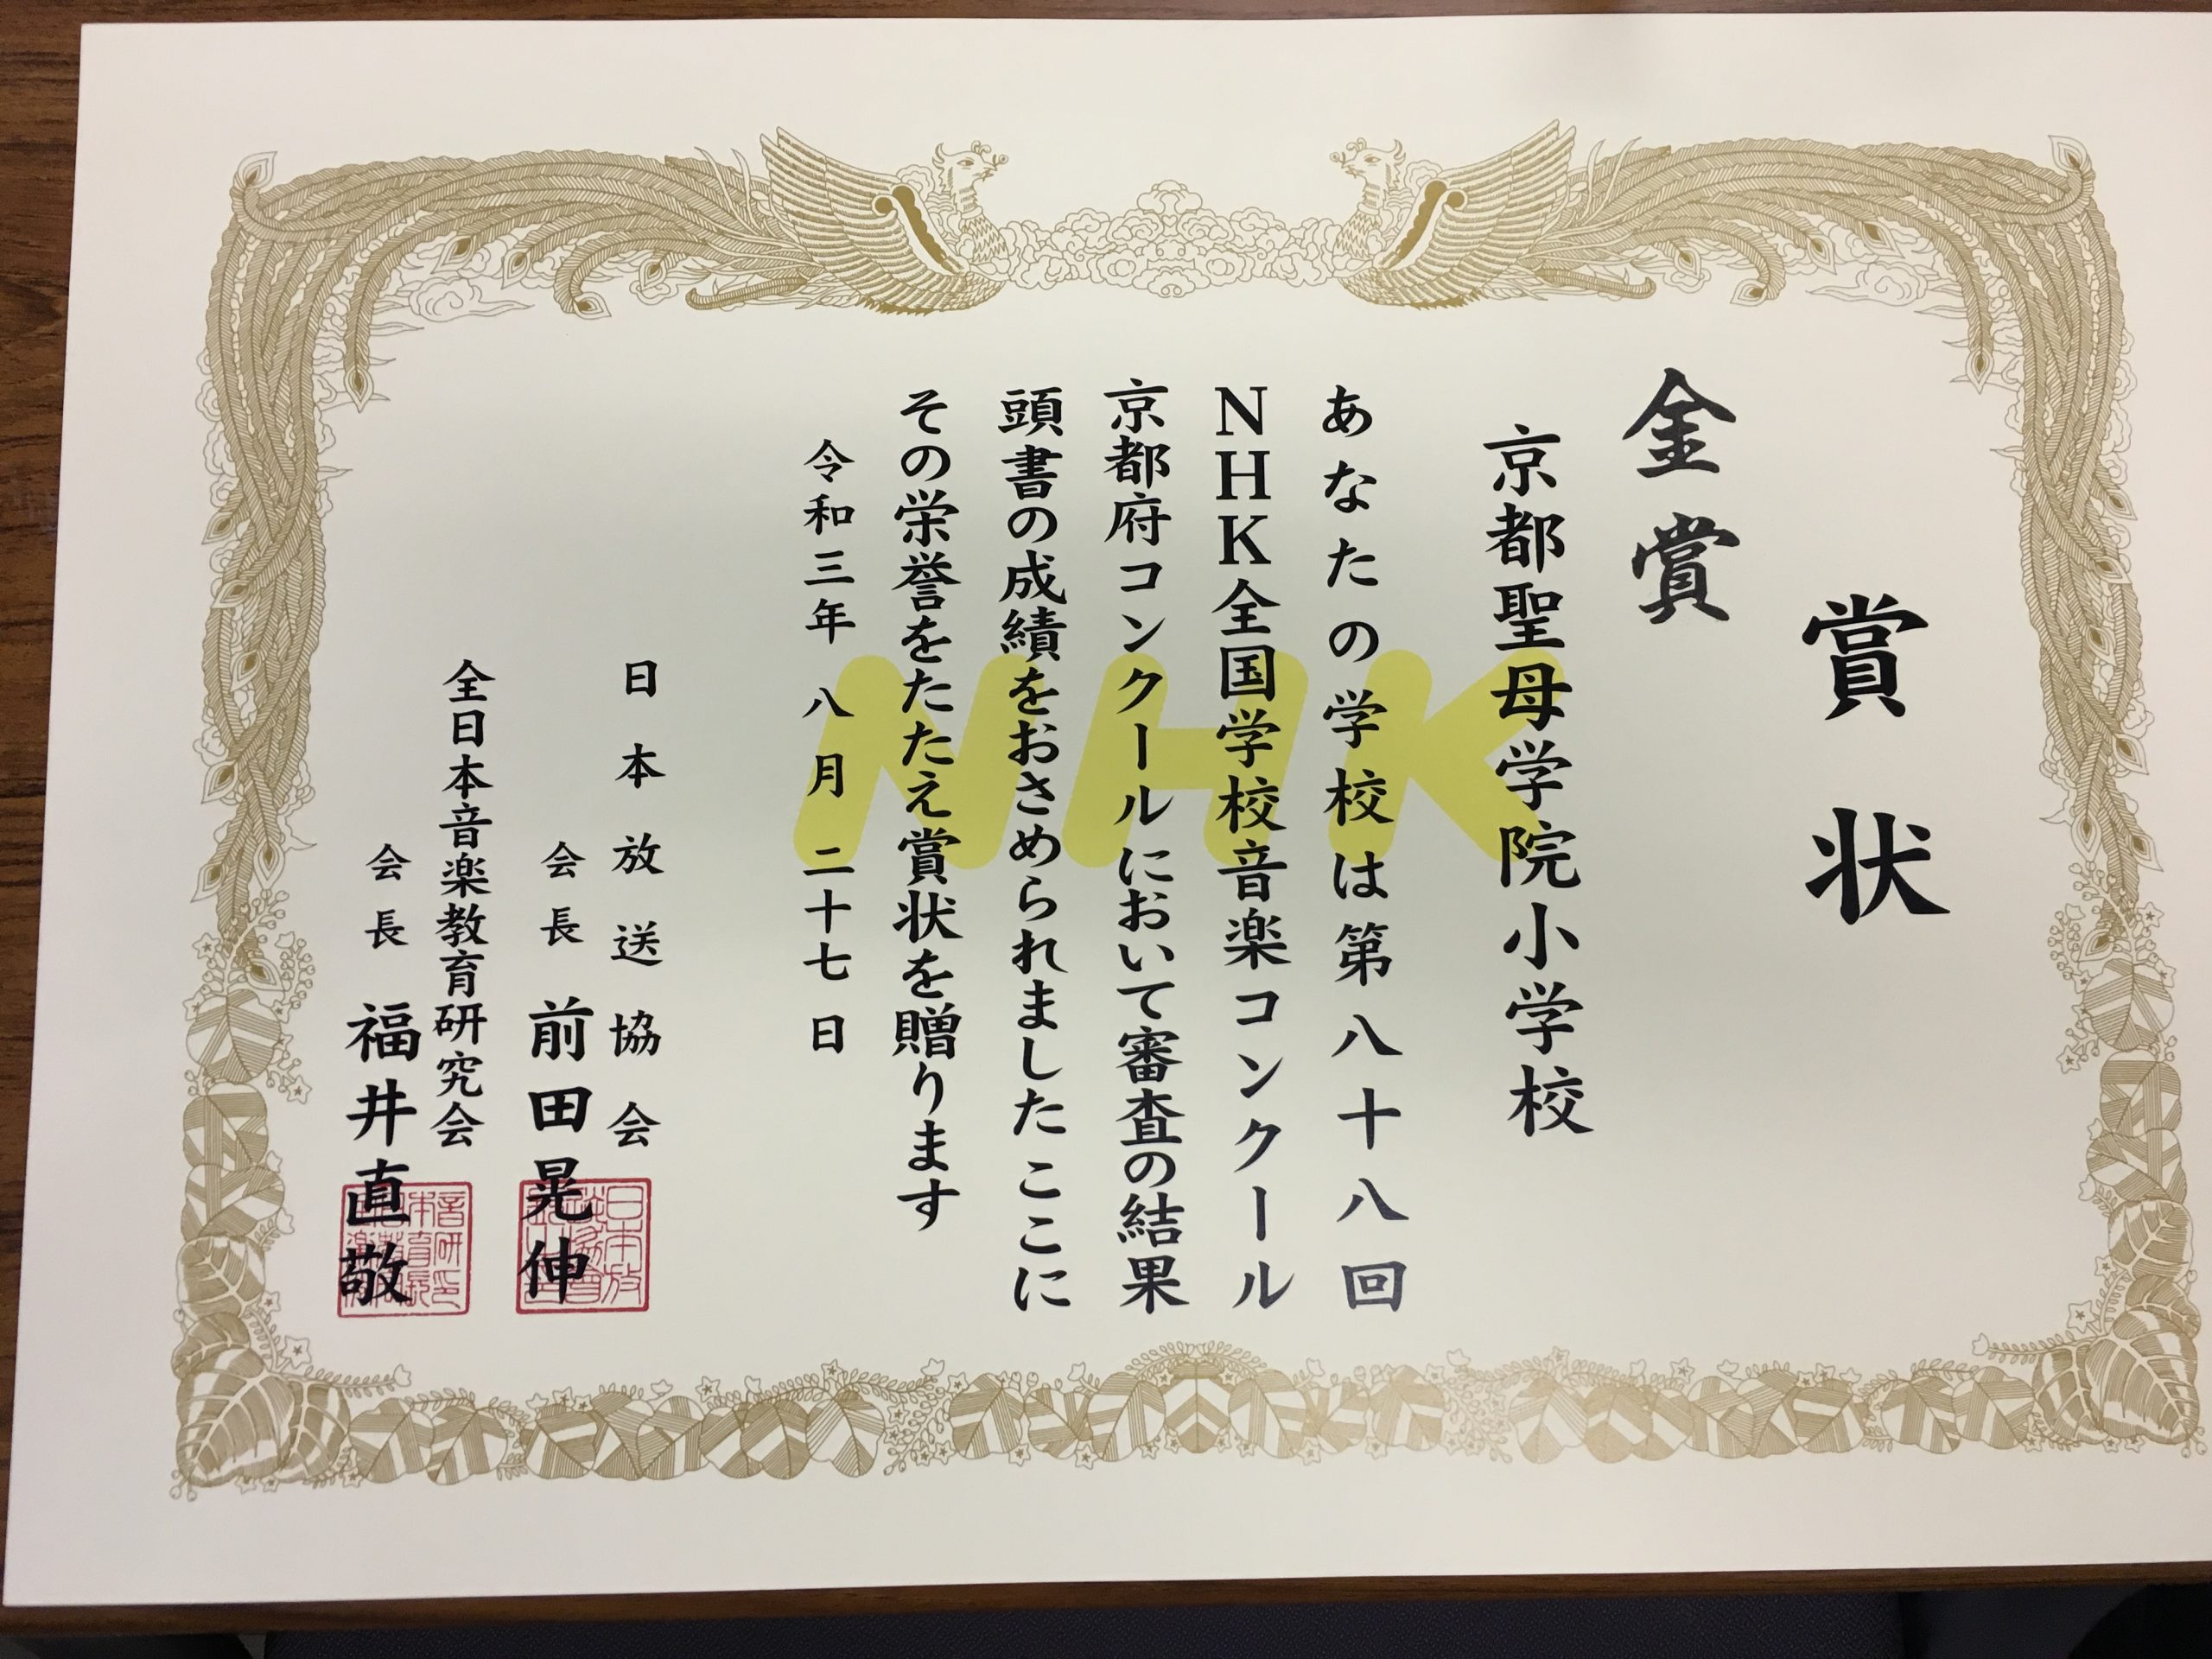 賞状
金賞
京都聖母学院小学校
あなたの学校は第八十八回
NHK全国学校音楽コンクール
京都府コンクールにおいて審査の結果
頭書の成績をおさめられました ここに
その栄誉をたたえ賞状を贈ります
令和三年 八月 二十七日
日本放送協会
会長 前田晃伸
全日本音楽教育研究会
会長 福井直敬
NHK